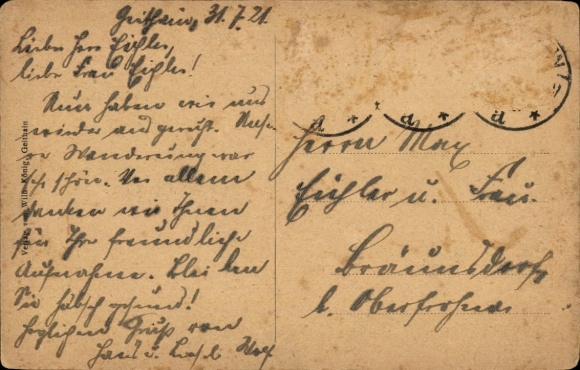 Geithain, 31.7.21.
Liebe Herr Eichler,
liebe Frau Eichler!
Nun haben wir uns
wieder ausgeruht. Unse-
re Wanderung war
sehr schön. Vor allem
danken wir Ihnen
für Ihre freundliche
Aufnahme. Bleiben
Sie hübsch gesund!
Herzlichen Gruß von
Hans u. Wolf
Verlag von Willy König, Geithain
d * d * d *
Herrn Max
Eichler u. Frau
Bräunsdorf
b. Oberfrohna